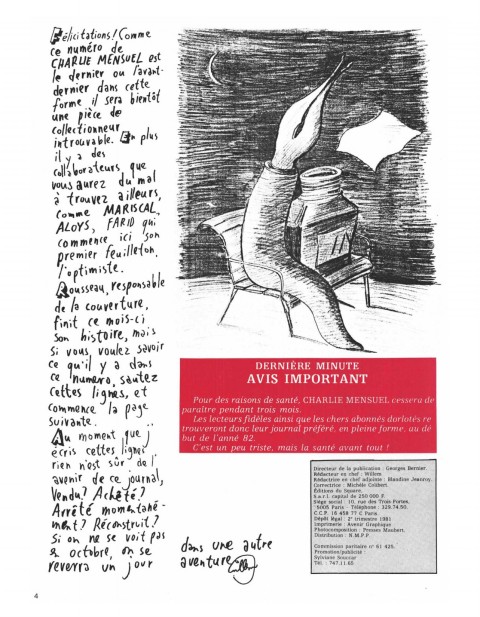 Félicitations! Comme
ce numéro de
CHARLIE MENSUEL est
le dernier ou l'avant-
dernier dans cette
forme il sera bientôt
une pièce de
collectionneur
introuvable. En plus
il y a des
collaborateurs que
vous aurez du mal
à trouvez ailleurs,
comme MARISCAL,
ALOYS, FARID qui
commence ici son
premier feuilleton,
l'optimiste.
Rousseau, responsable
de la couverture,
finit ce mois-ci
son histoire, mais
si vous voulez savoir
ce qu'il y a dans
ce numero, sautez
cettes lignes, et
commence la page
suivante.
Au moment que j
écris cettes lignes
rien n'est sûr de l'
avenir de ce journal,
Vendu? Acheté?
Arrêté momentané-
ment? Réconstruit?
Si on ne se voit pas
en octobre, on se
reverra un jour
dans une autre
aventure
Willem
DERNIÈRE MINUTE
AVIS IMPORTANT
Pour des raisons de santé, CHARLIE MENSUEL cessera de
paraître pendant trois mois.
Les lecteurs fidèles ainsi que les chers abonnés dorlotés re
trouveront donc leur journal préféré, en pleine forme, au dé
but de l'année 82.
C'est un peu triste, mais la santé avant tout !
Directeur de la publication : Georges Bernier.
Rédacteur en chef : Willem.
Rédactrice en chef adjointe : Mandine Jeanroy.
Correctrice : Michèle Colibert.
Éditions du Square.
S.a.r.l. capital de 250 000 F.
Siège social : 10, rue des Trois-Portes,
5005 Paris - Téléphone : 329.74.50.
C.C.P. 16 458 77 C Paris.
Dépôt légal : 2e trimestre 1981
Imprimerie : Avenir Graphique
Photocomposition : Presses Maubert.
Distribution : N.M.P.P.
Commission paritaire n° 61 425.
Promotion/publicité :
Sylviane Souccar
Tél. : 747.11.65
4